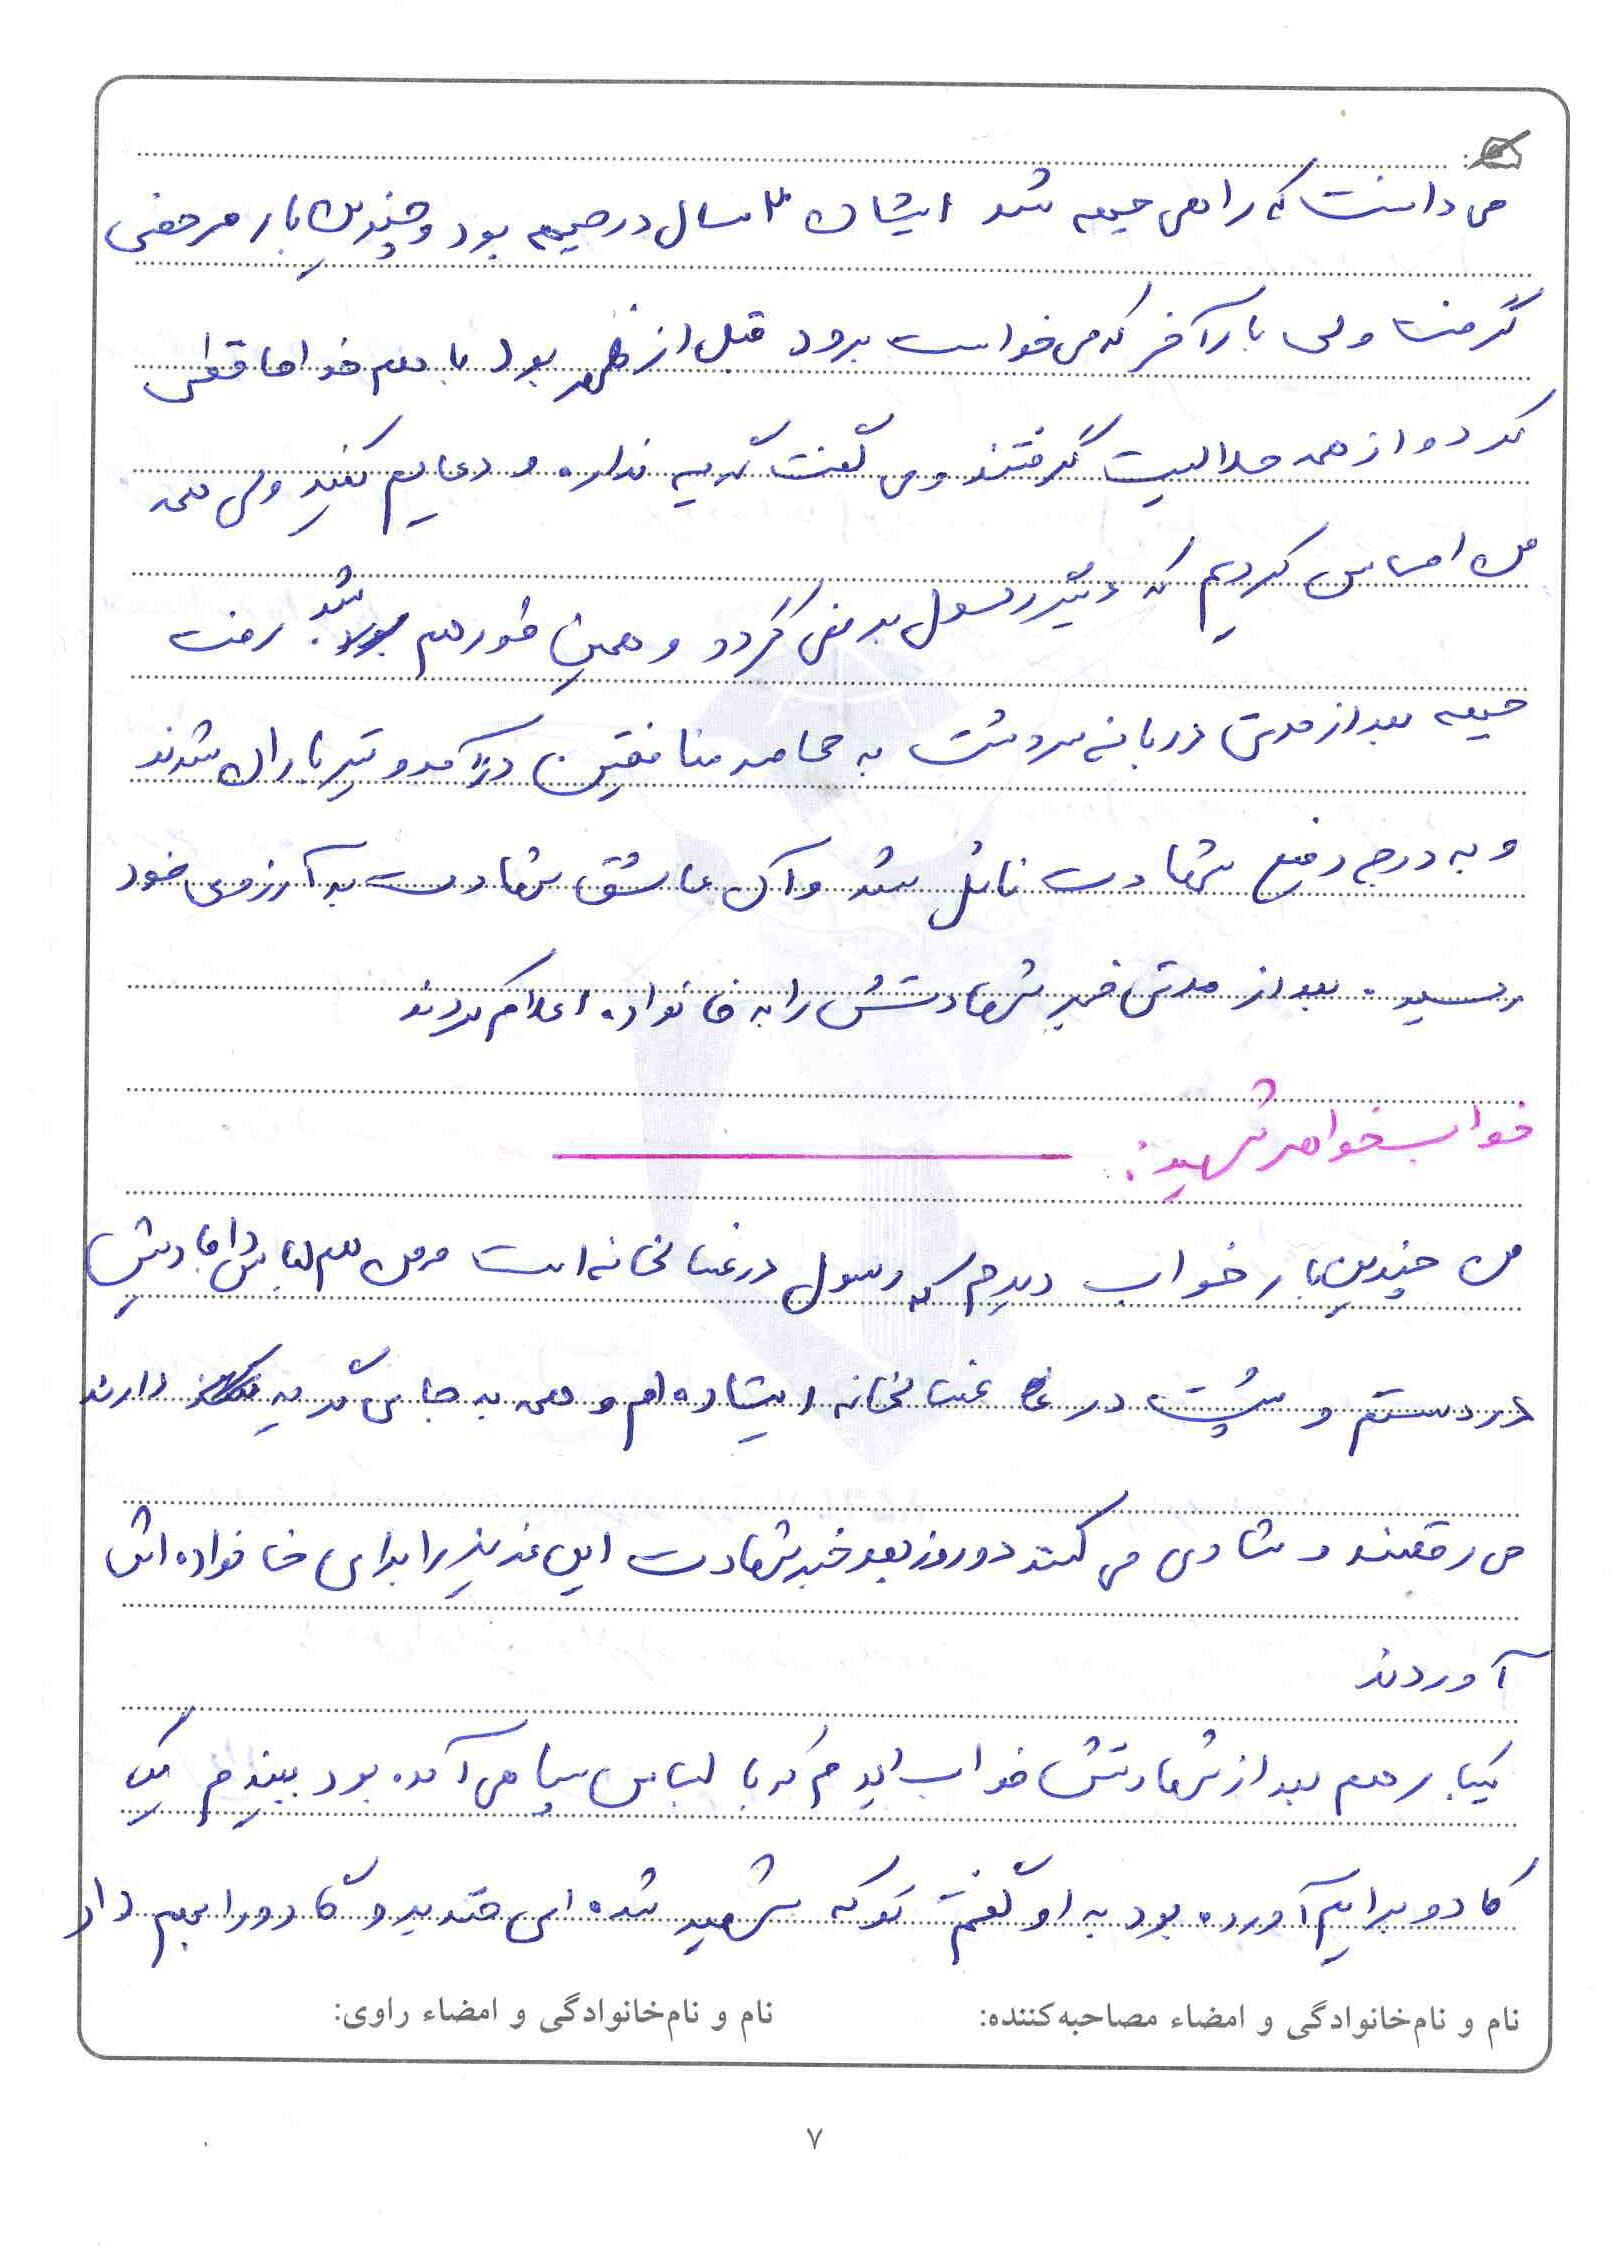 می دانست که راهی جبهه شد ایشان ۳ سال در جبهه بود و چندین بار مرخصی
گرفت ولی بار آخر که می خواست برود قبل از ظهر بود با همه خداحافظی
کرد و از همه حلالیت گرفتند و می گفت گریه نداره و دعایم کنید ولی همه
من احساس کردیم که دیگر رسول بر نمی گردد و همین طور هم شد. رفت
جبهه بعد از مدتی در بانه سردشت به محاصره منافقین در آمد و تیر باران شدند
و به درجه رفیع شهادت نائل شد و آن عاشق شهادت به آرزوی خود
رسید. بعد از مدتی خبر شهادتش را به خانواده اعلام کردند
خواب خواهر شهید:
من چندین بار خواب دیدم که رسول در غسالخانه است و من هم لباس دامادیش
در دستم و پشت در غسالخانه ایستاده ام و همه به جای گریه دارند
می رقصند و شادی می کنند دو روز بعد خبر شهادت این عزیز را برای خانواده اش
آوردند
یکبار هم بعد از شهادتش خواب دیدم که با لباس سپاهی آمده بود ببیندم یک
کادو برایم آورده بود به او گفتم تو که شهید شده ای خندید و کادو را بهم داد
نام و نام‌خانوادگی و امضاء مصاحبه‌کننده:
نام و نام‌خانوادگی و امضاء راوی:
۷